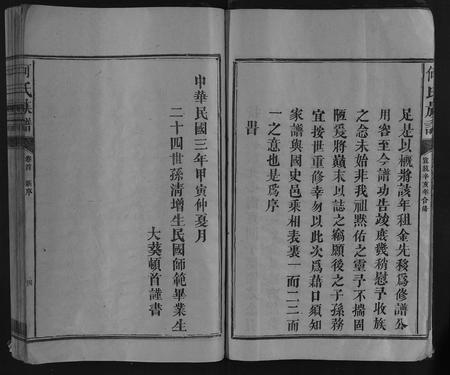 何氏族譜
宣統辛亥年合修
足是以概將該年租金先移為修譜公
用容至今譜功告竣庶幾稍慰予收族
之念未始非我祖默佑之靈予不揣固
陋爰將巔末以誌之竊願後之子孫務
宜按世重修幸勿以此次為藉口須知
家譜與國史邑乘相表裏一而二二而
一之意也是為序
旹
中華民國三年甲寅仲夏月
二十四世孫清增生民國師範畢業生
大葵頓首謹書
何氏族譜
卷首 新序
四